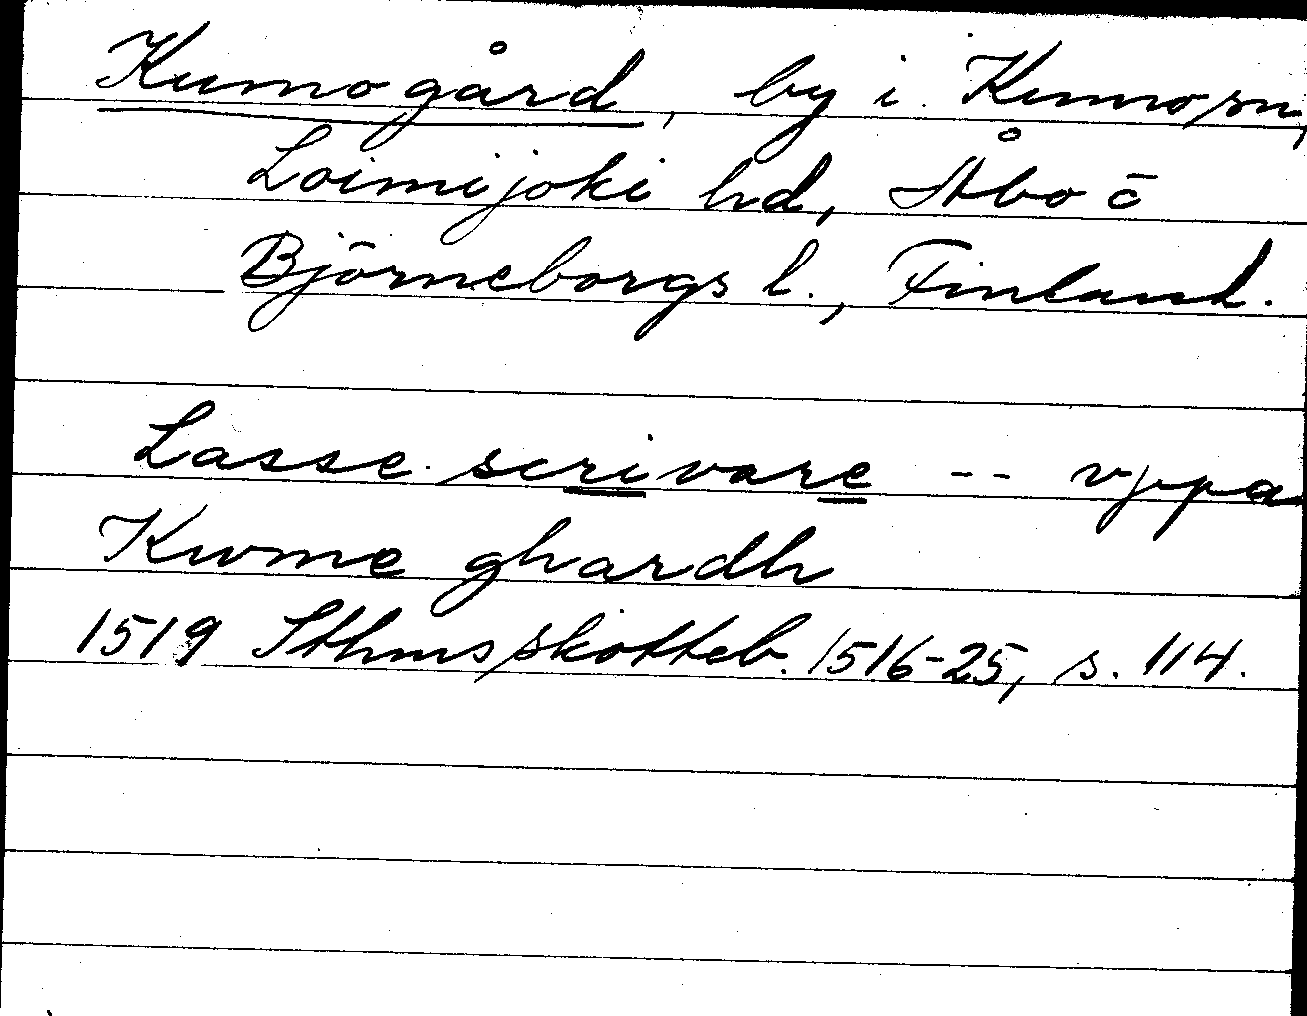 Kumogård, by i Kumo sn,
Loimijoki hd, Åbo o
Björneborgs l., Finland.
Lasse scrivare -- vppa
Kwme ghardh
1519 Sthms skotteb. 1516-25, s. 114.